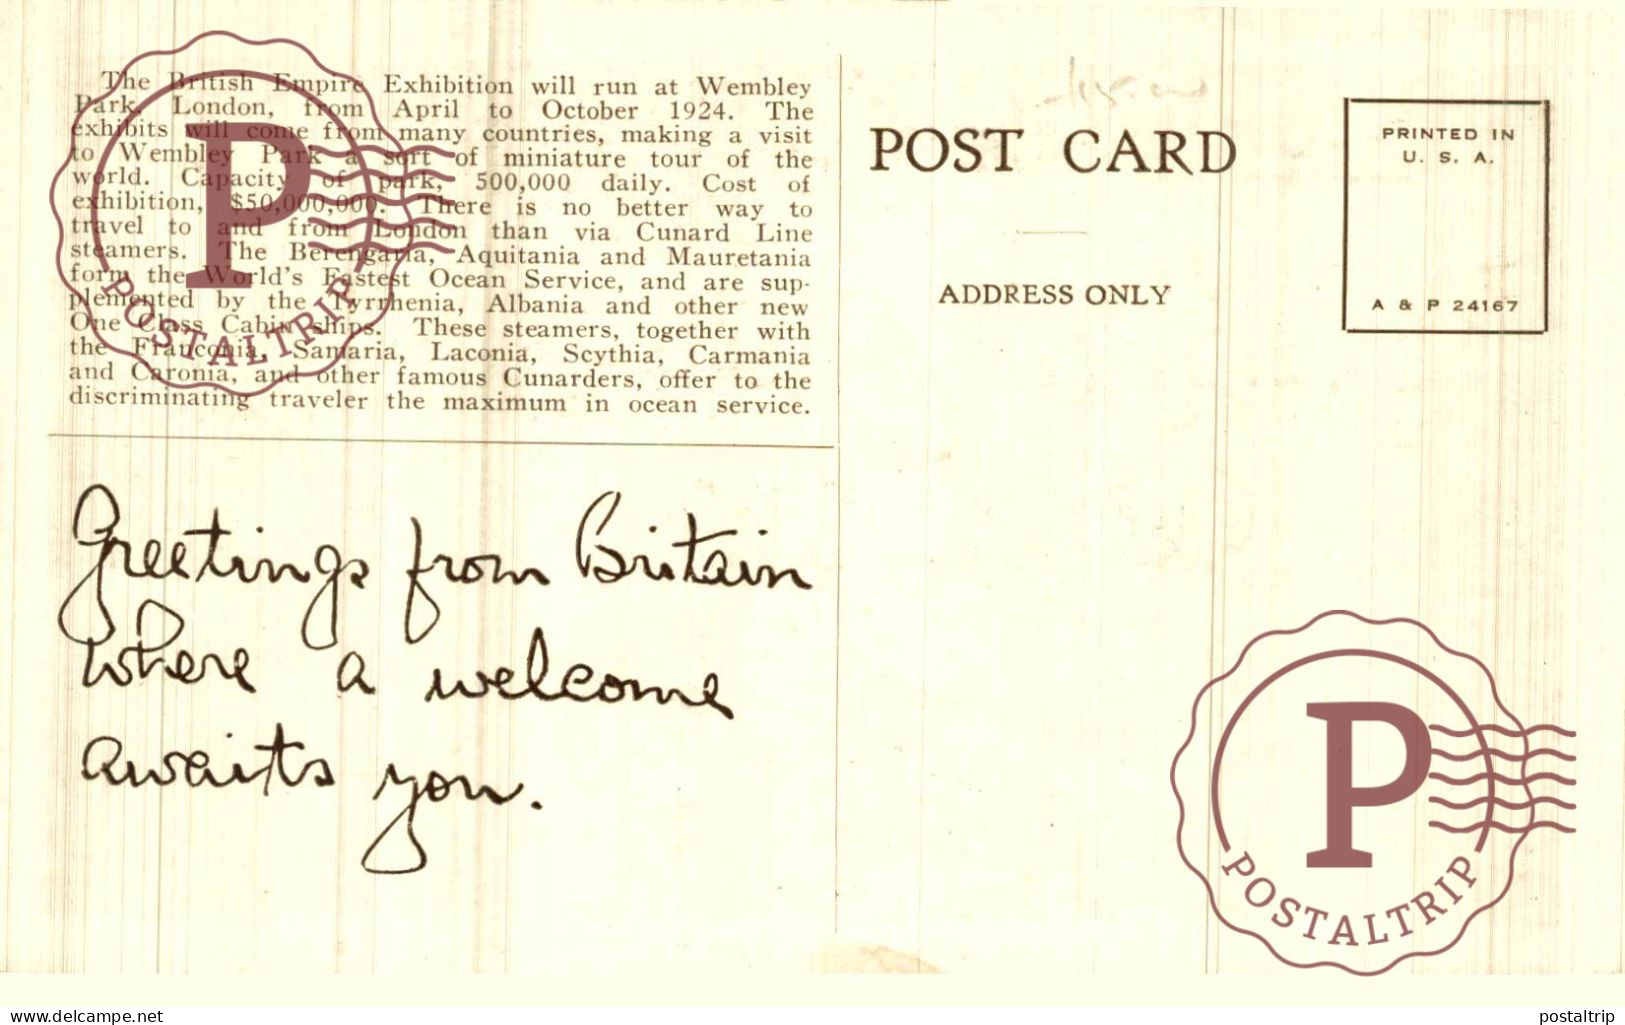 The British Empire Exhibition will run at Wembley
Park, London, from April to October 1924. The
exhibits will come from many countries, making a visit
to Wembley Park a sort of miniature tour of the
world. Capacity of park, 500,000 daily. Cost of
exhibition, $50,000,000. There is no better way to
travel to and from London than via Cunard Line
steamers. The Berengaria, Aquitania and Mauretania
form the World's Fastest Ocean Service, and are sup-
plemented by the Tyrrhenia, Albania and other new
One Class Cabin ships. These steamers, together with
the Franconia, Samaria, Laconia, Scythia, Carmania
and Caronia, and other famous Cunarders, offer to the
discriminating traveler the maximum in ocean service.
Greetings from Britain
where a welcome
awaits you.
POST CARD
ADDRESS ONLY
PRINTED IN
U. S. A.
A & P 24167
P
POSTALTRIP
P
POSTALTRIP
www.delcampe.net
postaltrip